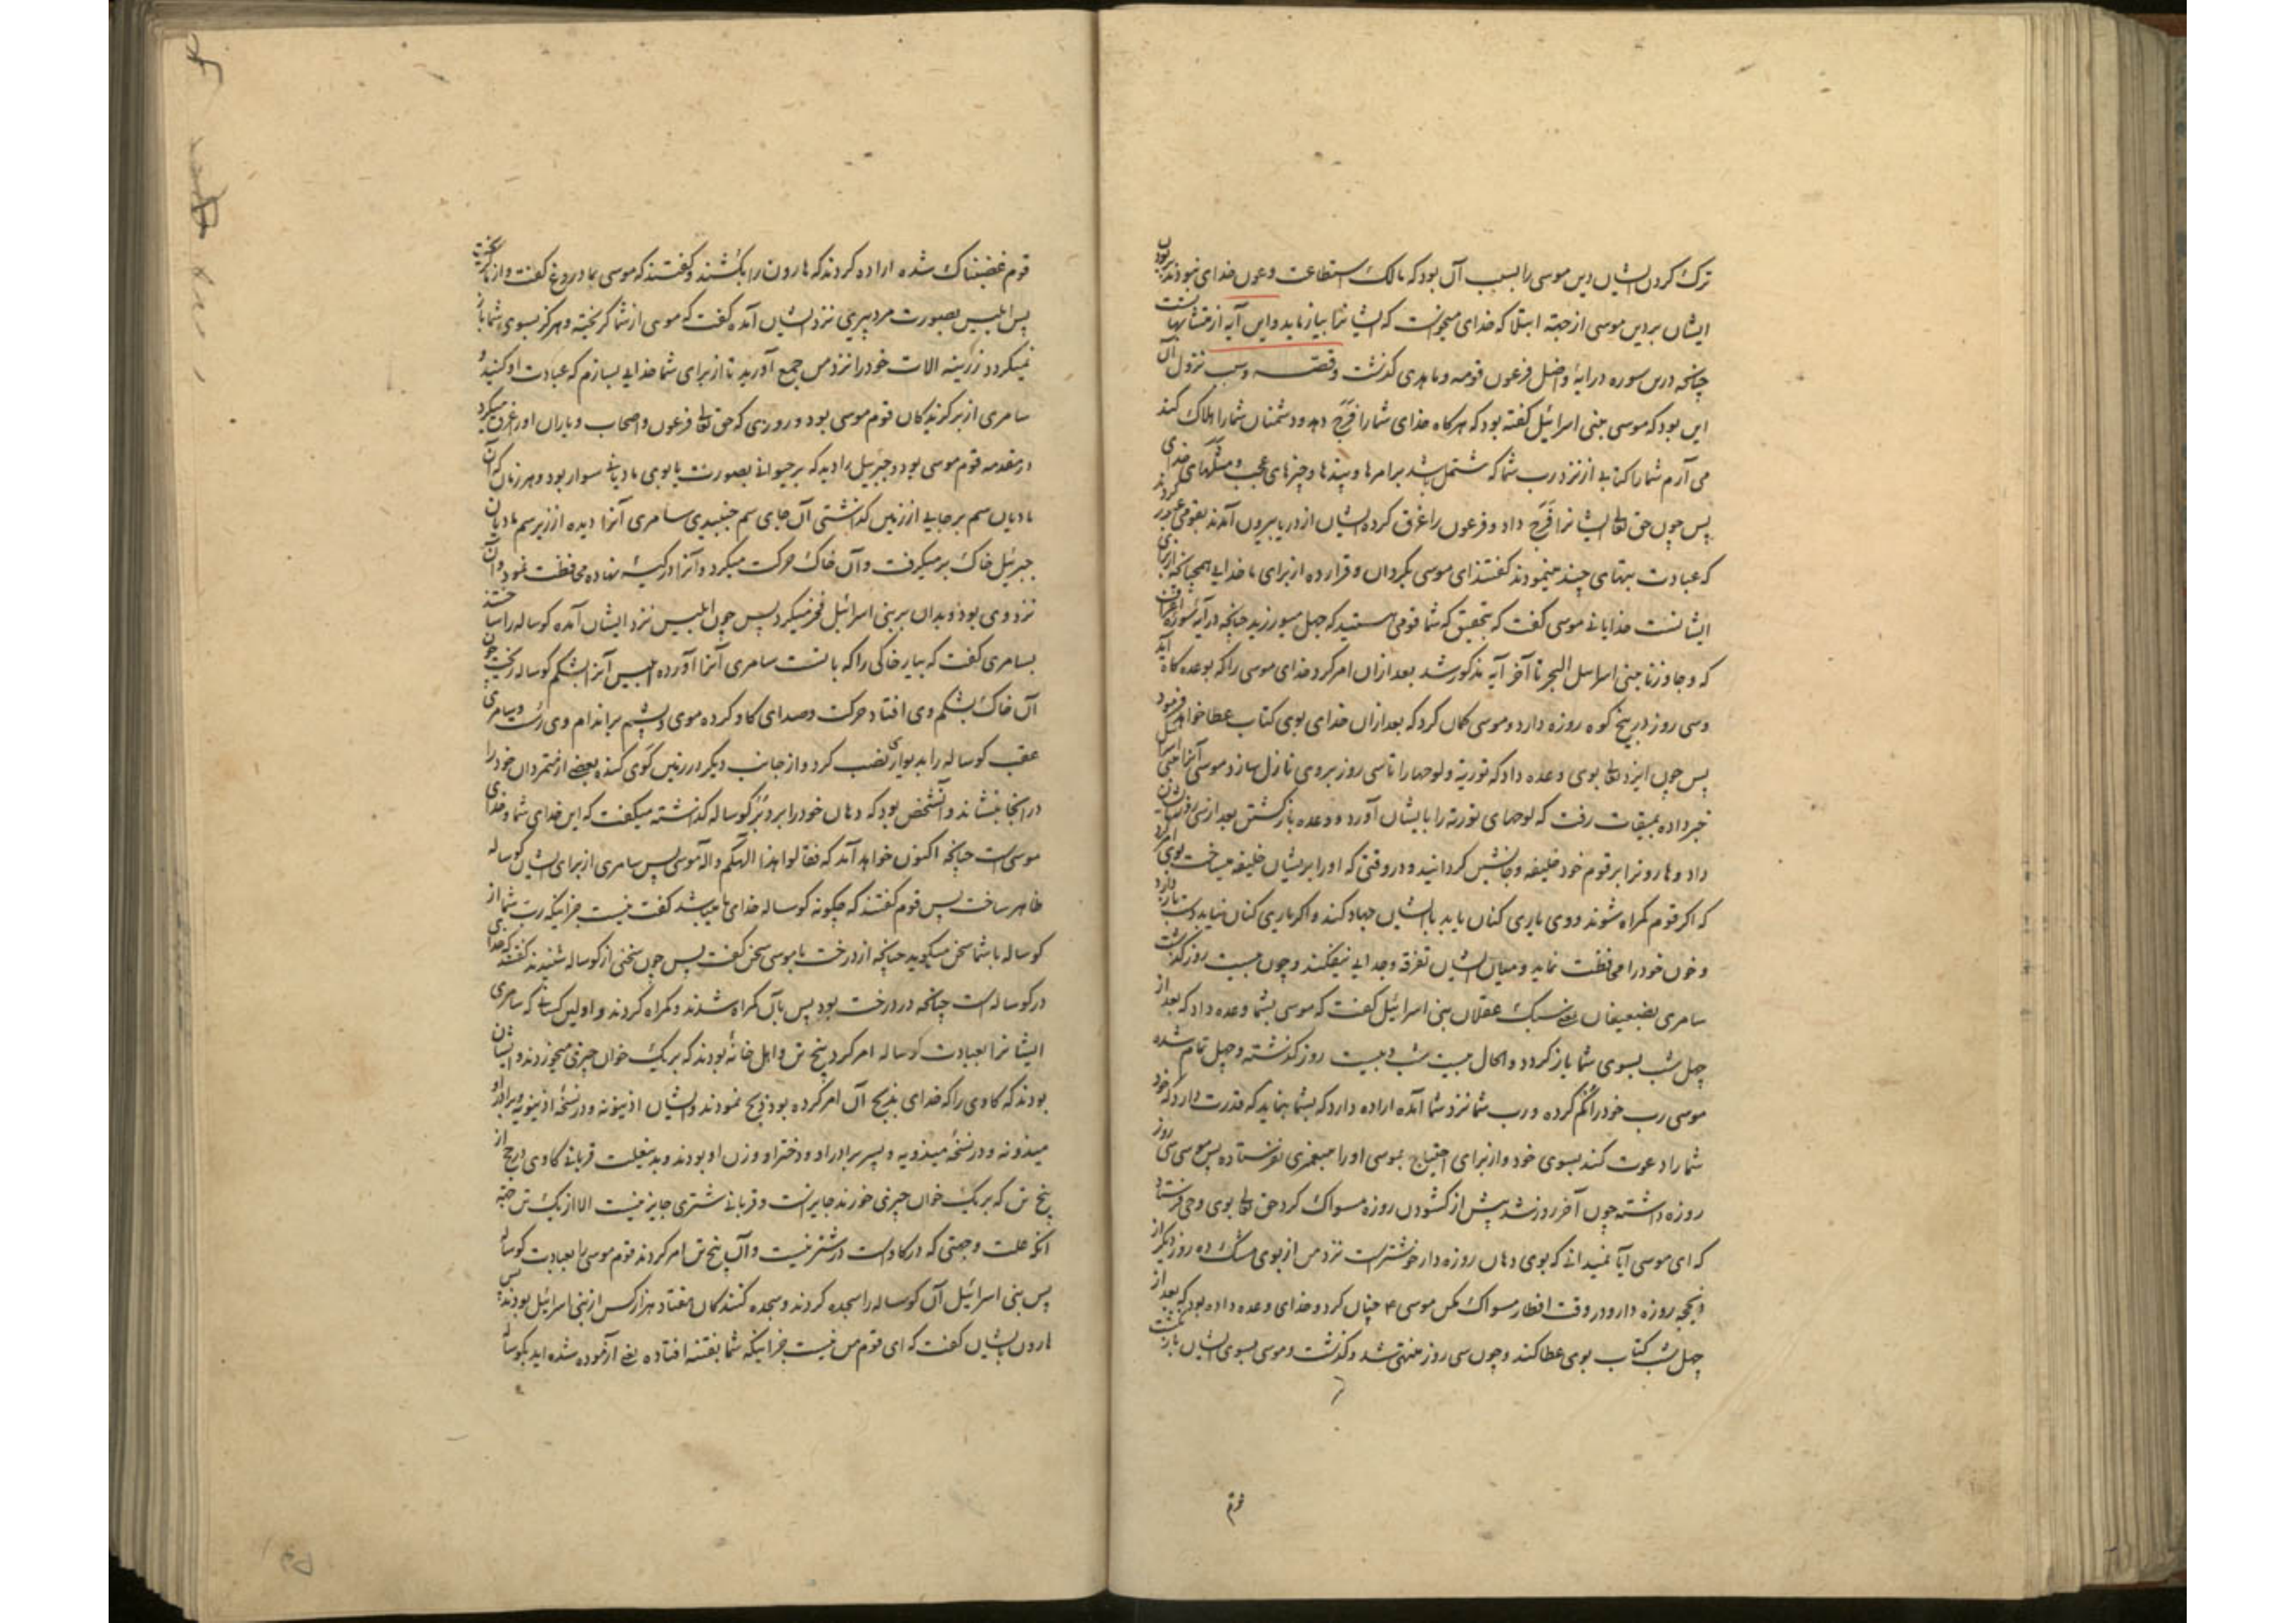 ترک کردن ایشان دین موسی را بسبب آن بود که مالک استطاعت و عون خدای نبودند
ایشان بر دین موسی از جهة ابتلا که خدای میخواست که ایشانرا بیازماید و این آیه از متشابهات
چنانچه درین سوره در آیۀ واضل فرعون قومه وما هدی گذشت وقصه وسبب نزول آن
این بود که موسی ببنی اسرائیل گفته بود که هرگاه خدای شما را فرج دهد و دشمنان شما را هلاک کند
می آرم شما را کتابی از نزد رب شما که مشتمل باشد بر امرها و پندها و چیزهای عجب و مثلهای خدای
پس چون حق تعالی ایشانرا فرج داد و فرعون را غرق کرده ایشان از دریا بیرون آمدند بقومی عبور کردند
که عبادت بتهای چند مینمودند گفتند ای موسی بگردان و قرار ده از برای ما خدایی همچنانچه از برای
ایشانست خدایانی موسی گفت که بتحقیق که شما قومی هستید که جهل میورزید چنانچه در آیۀ سورۀ اعراف
که وجاوزنا ببنی اسراییل البحر تا آخر آیه مذکور شد بعد ازان امر کرد خدای موسی را که بوعده گاه آید
وسی روز در بیخ کوه روزه دارد و موسی گمان کرد که بعد ازان خدای بوی کتاب عطا خواهد فرمود
پس چون ایزد تعالی بوی وعده داد که توریة و لوحها را تا سی روز بر وی نازل سازد و موسی آنرا ببنی اسرائیل
خبر داده بمیقات رفت که لوحهای توریة را بایشان آورد و وعده بازگشتن بعد از سی روز بایشان
داد و هارونرا بر قوم خود خلیفه و جانشین گردانید و در وقتی که او را بریشان خلیفه میساخت بوی امر کرد
که اگر قوم گمراه شوند و وی یاری کنان یابد با ایشان جهاد کند و اگر یاری کنان نیابد دست باز دارد
و خون خود را محافظت نماید و میان ایشان تفرقه و جدایی نیفکند و چون بیست روز گذشت
سامری بضعیفان یعنی سبک عقلان بنی اسرائیل گفت که موسی بشما وعده داد که بعد از
چهل شب بسوی شما باز گردد و الحال بیست شب و بیست روز گذشته و چهل تمام شده
موسی رب خود را گم کرده و رب شما نزد شما آمده اراده دارد که بشما بنماید که قدرت دارد که خود
شما را دعوت کند بسوی خود و از برای احتیاج بموسی او را مبعمری نفرستاده پس موسی سی روز
روزه داشته چون آخر روز شد پیش از گشودن روزه مسواک کرد حق تعالی بوی وحی فرستاد
که ای موسی آیا نمیدانی که بوی دهان روزه دار خوشترست نزد من از بوی مشک ده روز دیگر از
ذیحجه روزه دار و در وقت افطار مسواک مکن موسی ع چنان کرد و خدای وعده داده بود که بعد از
چهل شب کتاب بوی عطا کند و چون سی روز منتهی شد و گذشت و موسی بسوی ایشان باز نگشت
قوم
قوم غضبناک شده اراده کردند که هارون را بکشند و گفتند که موسی بما دروغ گفت و از ما گریخت
پس ابلیس بصورت مرد پیری نزد ایشان آمده گفت که موسی از شما گریخته و هرگز بسوی شما باز
نمیگردد زرینه الات خود را نزد من جمع آورید تا از برای شما خدایی بسازم که عبادت او کنید و
سامری از برگزیدگان قوم موسی بود و روزی که حق تعالی فرعون و اصحاب و یاران او را غرق میکرد
در مقدمه قوم موسی بود و جبرئیل را دید که بر حیوانی بصورت یابوی مادیانی سوار بود و هر زمان که آن
مادیان سم بر جایی از زمین گذاشتی آن جای سم جنبیدی سامری آنرا دیده از زیر سم مادیان
جبرئیل خاک بر میگرفت و آن خاک حرکت میکرد و آنرا در کیسه نهاده محافظت نمود و آن
نزد وی بود و بدان بر بنی اسرائیل فخر میکرد پس چون ابلیس نزد ایشان آمده گوساله را ساختند
بسامری گفت که بیار خاکی را که با تست سامری آنرا آورده ابلیس آنرا بشکم گوساله ریخت چون
آن خاک بشکم وی افتاد حرکت و صدای گاو کرده موی و پشم بر اندام وی رست و سامری
عقب گوساله را بدیواری نصب کرد و از جانب دیگر در زمین گوی کنده بعضی از متمردان خود را
در آنجا بنشاند و آنشخص بود که دهان خود را بر دُبُر گوساله گذاشته میگفت که این خدای شما و خدای
موسی است چنانچه اکنون خواهد آمد که فقالوا هذا الهکم واله موسی پس سامری از برای ایشان گوساله
ظاهر ساخت پس قوم گفتند که چگونه گوساله خدای ما میباشد گفت نیست جز اینکه رب شما از
گوساله با شما سخن میگوید چنانچه از درخت با موسی سخن گفت پس چون سخنی از گوساله شنیدند گفتند که خدا
در گوساله است چنانچه در درخت بود پس بآن گمراه شدند و گمراه کردند و اولین کسانی که سامری
ایشانرا بعبادت گوساله امر کرد پنج تن و اهل خانۀ بودند که بر یک خوان چیزی میخوردند و ایشان
بودند که گاوی را که خدای بذبح آن امر کرده بود ذبح نمودند و ایشان اذینونه و در نسخۀ اذینویه و برادر او
میذونه و در نسخۀ میذویه و پسر برادر او و دختر او و زن او بودند و بدینعلت قربانی گاوی در حج از
پنج تن که بر یک خوان چیزی خورند جایزست و قربانی شتری جایز نیست الا از یک تن جهة
آنکه علت و جهتی که در گاوست در شتر نیست و آن پنج تن امر کردند قوم موسی را بعبادت گوساله
پس بنی اسرائیل آن گوساله را سجده کردند و سجده کنندگان هفتاد هزار کس از بنی اسرائیل بودند پس
هارون بایشان گفت که ای قوم من نیست جز اینکه شما بفتنه افتاده یعنی آزموده شده اید بگوساله